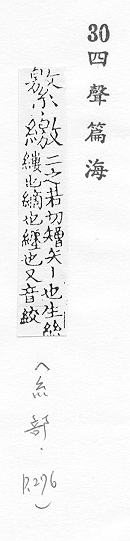 30 四聲篇海
繁、繳 二之若切矰矢丨也生絲
縷也縞也纏也又音皎
(糸部.
p.296)